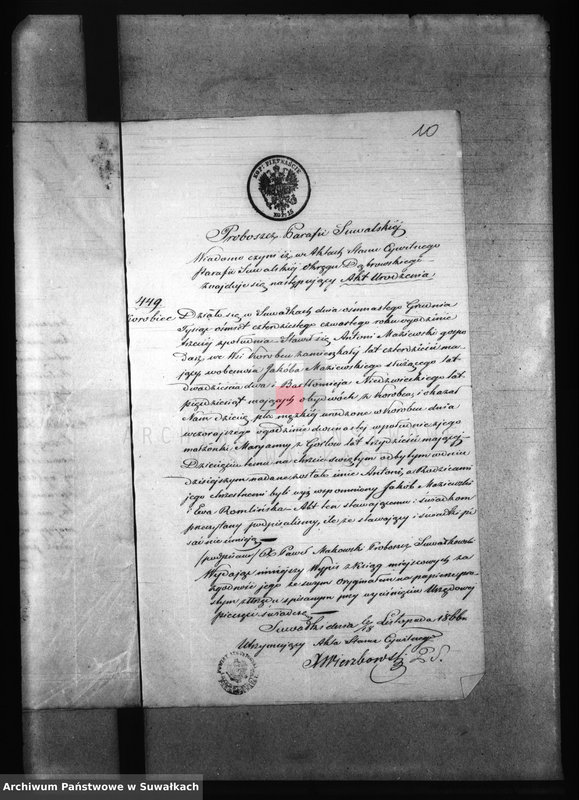 10
KOP: PIĘTNAŚCIE
KOP. 15
Proboszcz Parafii Suwalskiéj
Wiadomo czyni iż w Aktach Stanu Cywilnego
Parafii Suwalskiéj Okręgu Dąbrowskiego
znajduje się następujący Akt Urodzenia
449
Korobiec
Działo się w Suwałkach dnia osmnastego Grudnia
tysiąc ośmset czterdziestego czwartego roku o godzinie
trzeciéj z południa. Stawił się Antoni Maziewski gospo
darz we Wsi Korobcu zamieszkały lat czterdzieści ma
jący w obecności Jakóba Maziewskiego służącego lat
dwadzieścia dwa i Bartłomieja Niedzwieckiego lat
pięćdziesiąt mających obydwóch z Korobca, i okazał
Nam dziecię płci męzkiéj urodzone w Korobcu dnia
wczorajszego o godzinie dwunastéj w południe z jego
małżonki Maryanny z lat trzydzieści mającéj
Dziecięciu temu na chrzcie świętym odbytym w dniu
dzisiejszym nadane zostało imie Antoni, a rodzicami
jego chrzestnemi byli wyż wspomniony Jakób Maziewski
i Ewa Akt ten stawającemu i świadkom
przeczytany podpisaliśmy, ile że stawający i świadki pi
sać nie umieją
/podpisano/ X Paweł Makowski Proboszcz Suwałkowski
Wydając niniejszy Wypis z Ksiąg miejscowych za
zgodność jego ze swym Oryginałem na papierze pro
stym z Urzędu spisanym przy wyciśnięciu Urzędowéj
pieczęci świadczę
Suwałki dnia Listopada 1866 r.
Utrzymujący Akta Stanu Cywilnego
X Wierzbowski
Archiwum Państwowe w Suwałkach